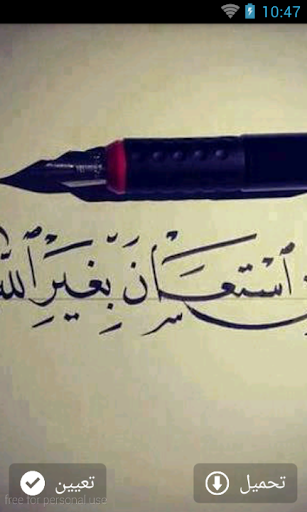 10:47
استعان بغير الله
تعيين
تحميل
free for personal use